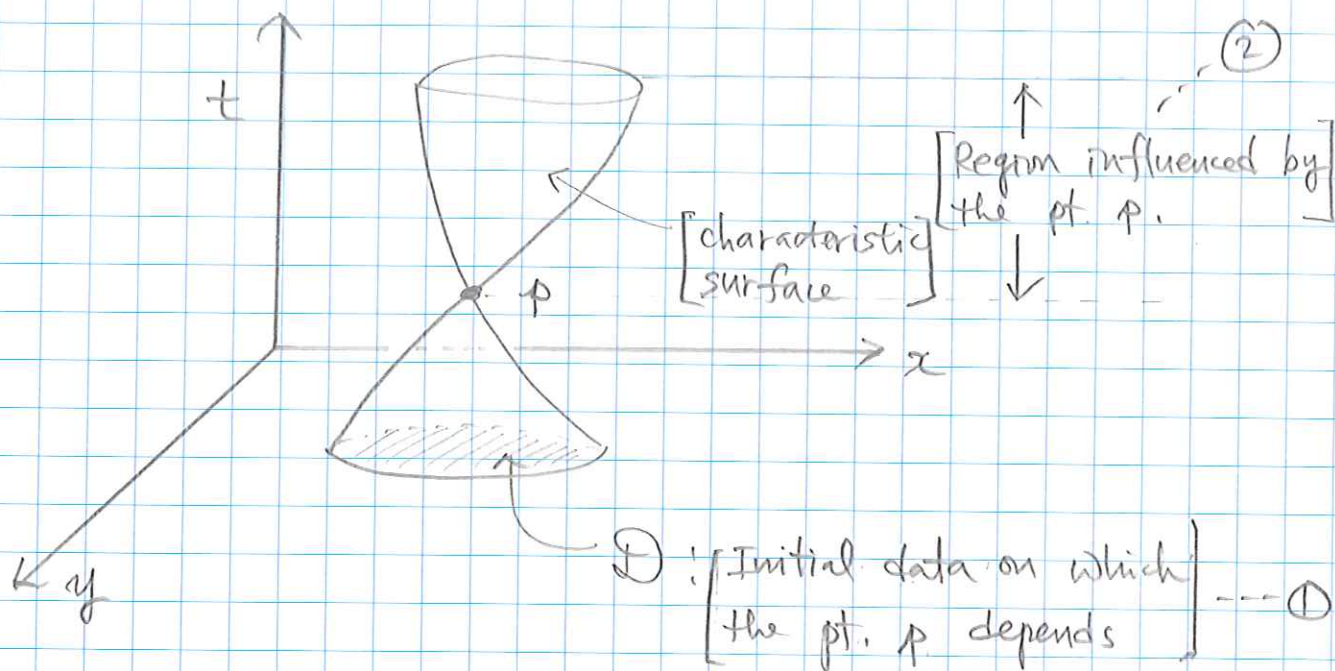 ②
t
[Region influenced by
the pt. p.]
[characteristic
surface]
p
x
D : [Initial data on which
the pt. p depends] --- ①
y